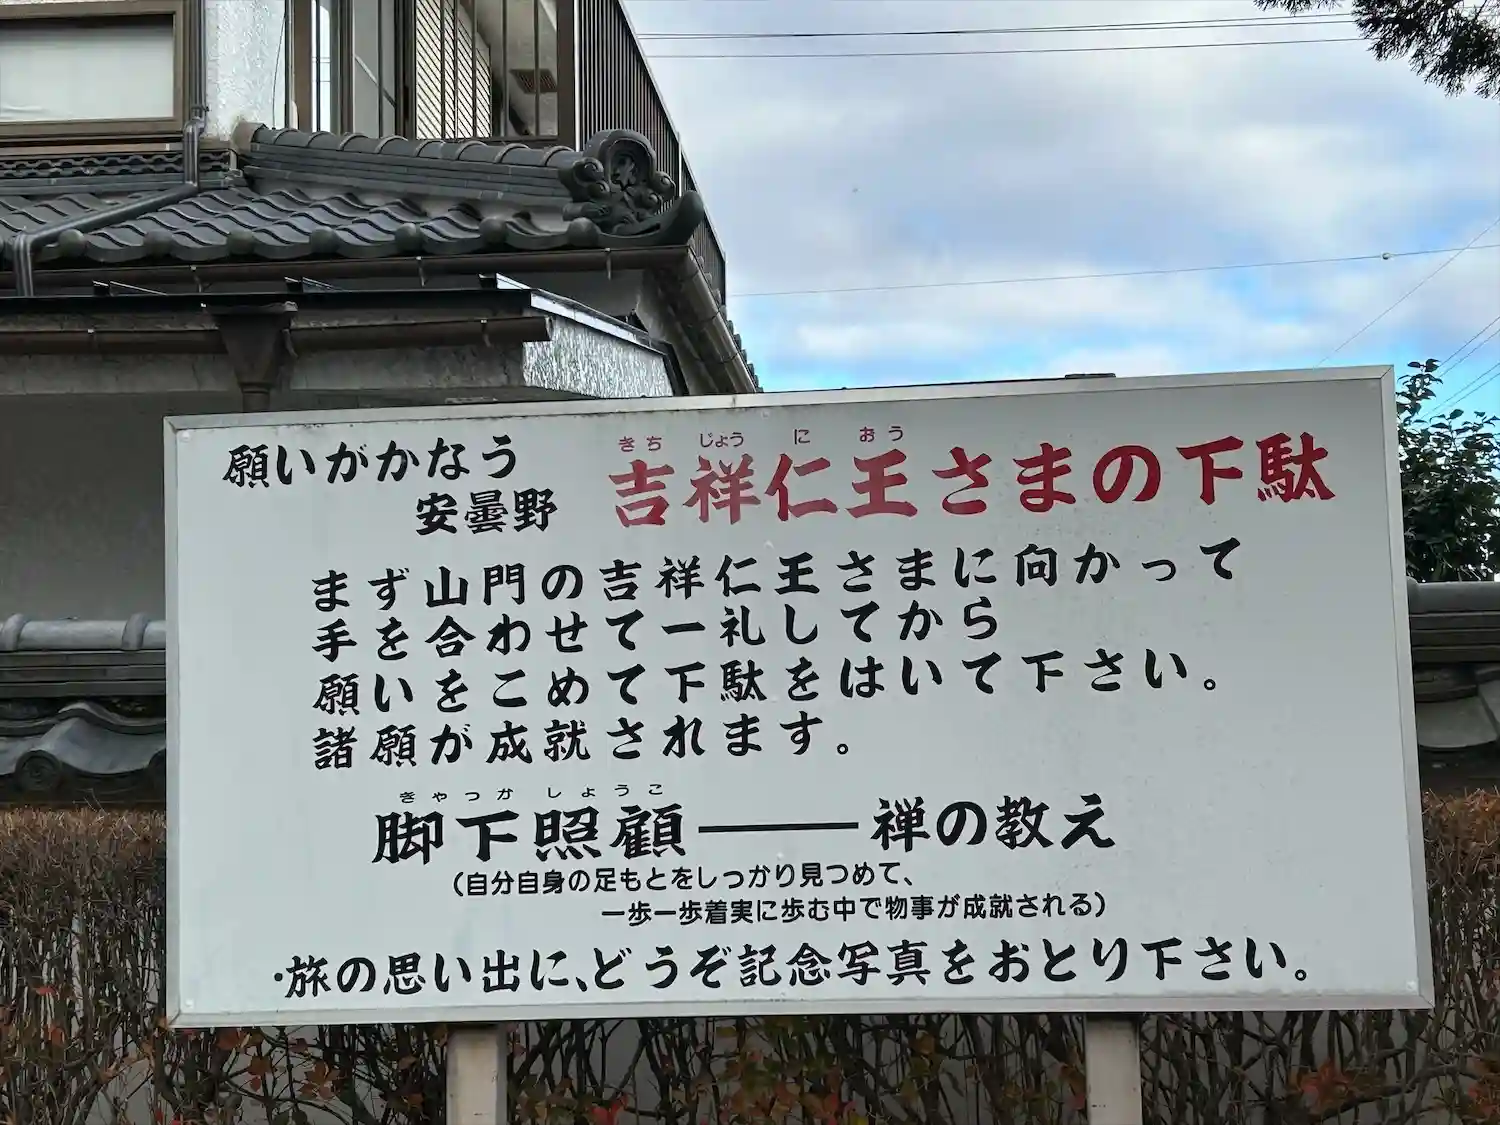 願いがかなう
安曇野
きちじょうにおう
吉祥仁王さまの下駄
まず山門の吉祥仁王さまに向かって
手を合わせて一礼してから
願いをこめて下駄をはいて下さい。
諸願が成就されます。
きゃっかしょうこ
脚下照顧――禅の教え
(自分自身の足もとをしっかり見つめて、
一歩一歩着実に歩む中で物事が成就される)
・旅の思い出に、どうぞ記念写真をおとり下さい。